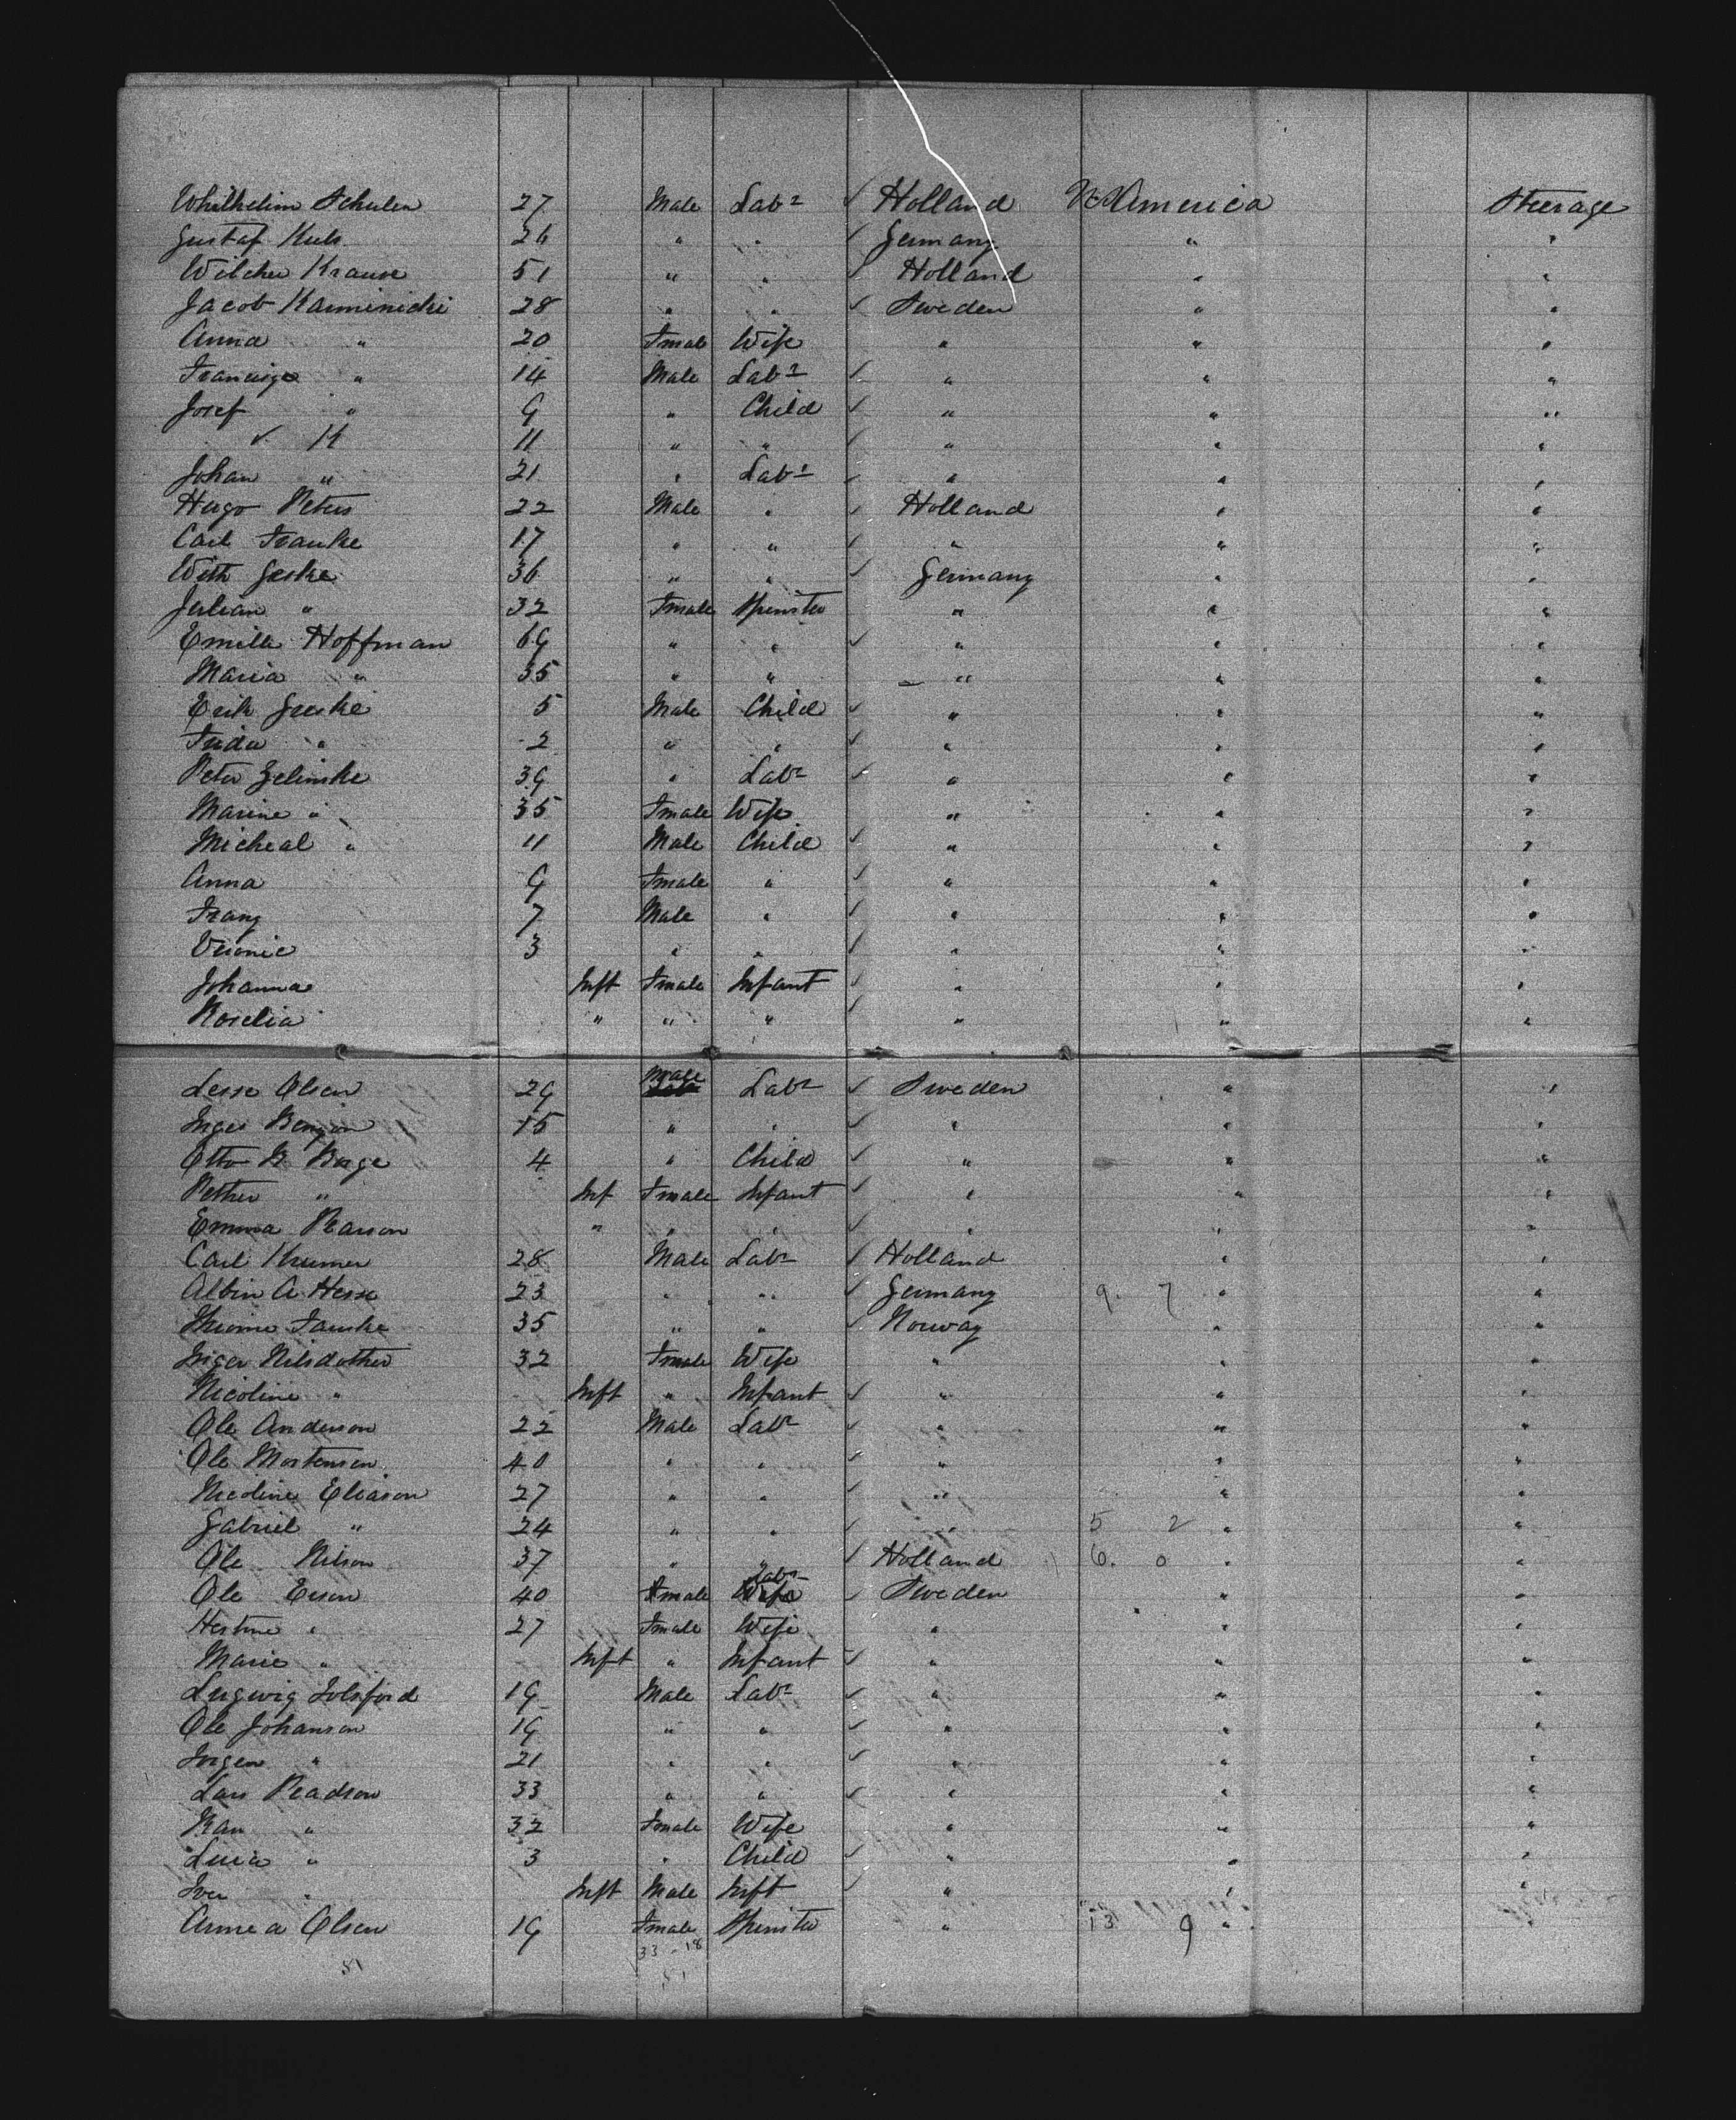 Whilhelim Schulen 27 Male Labr ✓ Holland N America Steerage
Gustaf Kuls 26 " " ✓ Germany " "
Wilcher Krause 51 " " ✓ Holland " "
Jacob Kaminicki 28 " " ✓ Sweden " "
Anna " 20 Fmale Wife " " "
" 14 Male Labr ✓ " " "
Josef " 9 " Child ✓ " " "
✓ K 11 " " ✓ " " "
Johan " 21 " Labr ✓ " " "
Hugo Peters 22 Male " ✓ Holland " "
Carl Franke 17 " " ✓ " " "
With Geske 36 " " ✓ Germany " "
Julian " 32 Fmale Spinster " " "
Emilla Hoffman 69 " " ✓ " " "
Maria " 35 " " " " "
Erik Geske 5 Male Child ✓ " " "
Frida " 2 " " ✓ " " "
Peter Zelinske 39 " Labr ✓ " " "
Marine " 35 Fmale Wife " " "
Micheal " 11 Male Child ✓ " " "
Anna 9 Fmale " ✓ " " "
Franz 7 Male " ✓ " " "
Vronic 3 " " ✓ " " "
Johanna Inft Fmale Infant ✓ " " "
Roselia " " " ✓ " " "
Lesse Olsen 29 Male Labr ✓ Sweden " "
Inger 15 " " ✓ " " "
Otto B Borge 4 " Child ✓ " " "
Pether " Inf Fmale Infant ✓ " " "
Emma Pearson " " " ✓ " " "
Carl Krumer 28 Male Labr ✓ Holland " "
Albin A Hesse 23 " " ✓ Germany 9. 7 " "
Fanske 35 " " ✓ Norway " "
Inger Nilsdother 32 Fmale Wife " " "
Nicoline " Inft " Infant ✓ " " "
Ole Anderson 22 Male Labr ✓ " " "
Ole Mortensen 40 " " ✓ " " "
Nicoline Eliason 27 " " ✓ " " "
Gabriel " 24 " " ✓ " 5 2 " "
Ole Nilson 37 " " ✓ Holland 6. 0 " "
Labr
Ole Eison 40 male Wife ✓ Sweden " "
Hestine " 27 Fmale Wife " " "
Marie " Inft " Infant ✓ " " "
Lugwig 19 Male Labr ✓ " " "
Ole Johanson 19 " " ✓ " " "
Jorgen " 21 " " ✓ " " "
Lars Peadson 33 " " ✓ " " "
Kan " 32 Fmale Wife " " "
Lucia " 3 " Child ✓ " " "
Iver " Inft Male Inft ✓ " " "
Annea Olsen 19 Fmale Spinster " 13 9 " "
33 - 18
51 51